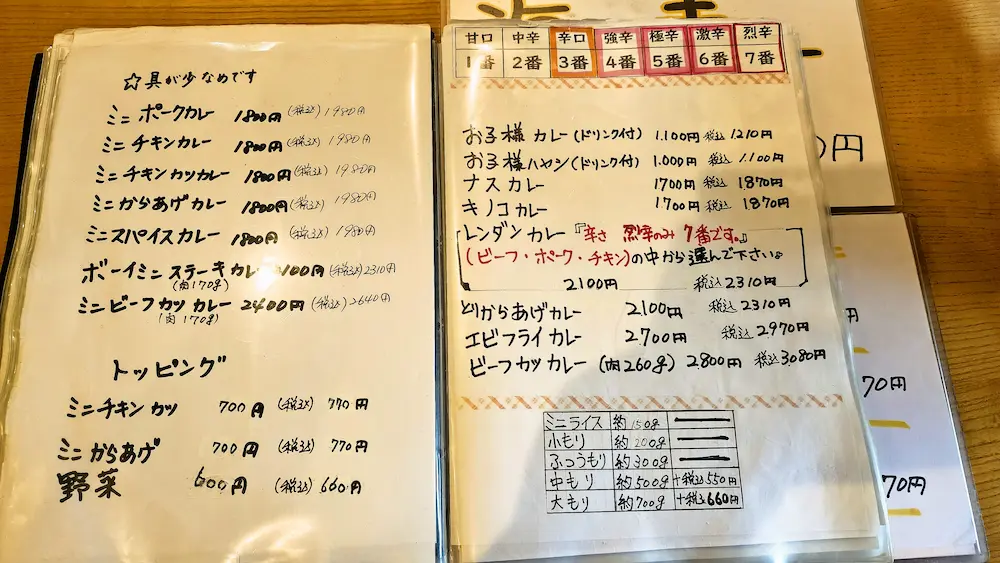 ☆具が少なめです
ミニ ポークカレー 1800円 (税込) 1980円
ミニ チキンカレー 1800円 (税込) 1980円
ミニ チキンカツカレー 1800円 (税込) 1980円
ミニ からあげ カレー 1800円 (税込) 1980円
ミニ スパイスカレー 1800円 (税込) 1980円
ボーイミニ ステーキカレー 2100円 (税込) 2310円
(肉170g)
ミニ ビーフカツ カレー 2400円 (税込) 2640円
(肉170g)
トッピング
ミニチキン カツ 700円 (税込) 770円
ミニ からあげ 700円 (税込) 770円
野菜 600円 (税込) 660円
甘口 中辛 辛口 強辛 極辛 激辛 烈辛
1番 2番 3番 4番 5番 6番 7番
お子様 カレー (ドリンク付) 1.100円 税込 1210円
お子様 ハヤシ (ドリンク付) 1.000円 税込 1.100円
ナス カレー 1700円 税込 1870円
キノコ カレー 1700円 税込 1870円
レンダン カレー 『辛さ 烈辛のみ 7番です。』
(ビーフ・ポーク・チキン)の中から選んで下さい。
2100円 税込 2310円
とりからあげカレー 2100円 税込 2310円
エビフライ カレー 2.700円 税込 2970円
ビーフ カツ カレー (肉260g) 2800円 税込 3080円
ミニライス 約150g ー
小もり 約200g ー
ふつうもり 約300g ー
中もり 約500g +税込550円
大もり 約700g +税込660円
0円
円
70円
70円